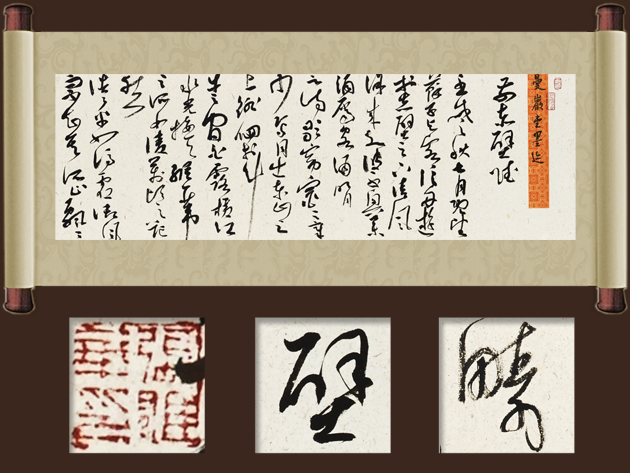 前赤壁賦
壬戌之秋七月既望
蘇子与客泛舟遊
於赤壁之下清風
徐来水波不興举
酒屬客誦明月
之詩歌窈窕之章
少焉月出東山之
上徘徊於斗
牛之間白露橫江
水光接天縱一葦
之所如凌萬頃之茫
然
浩浩乎如馮虛御風
而不知其所止飄飄
壁